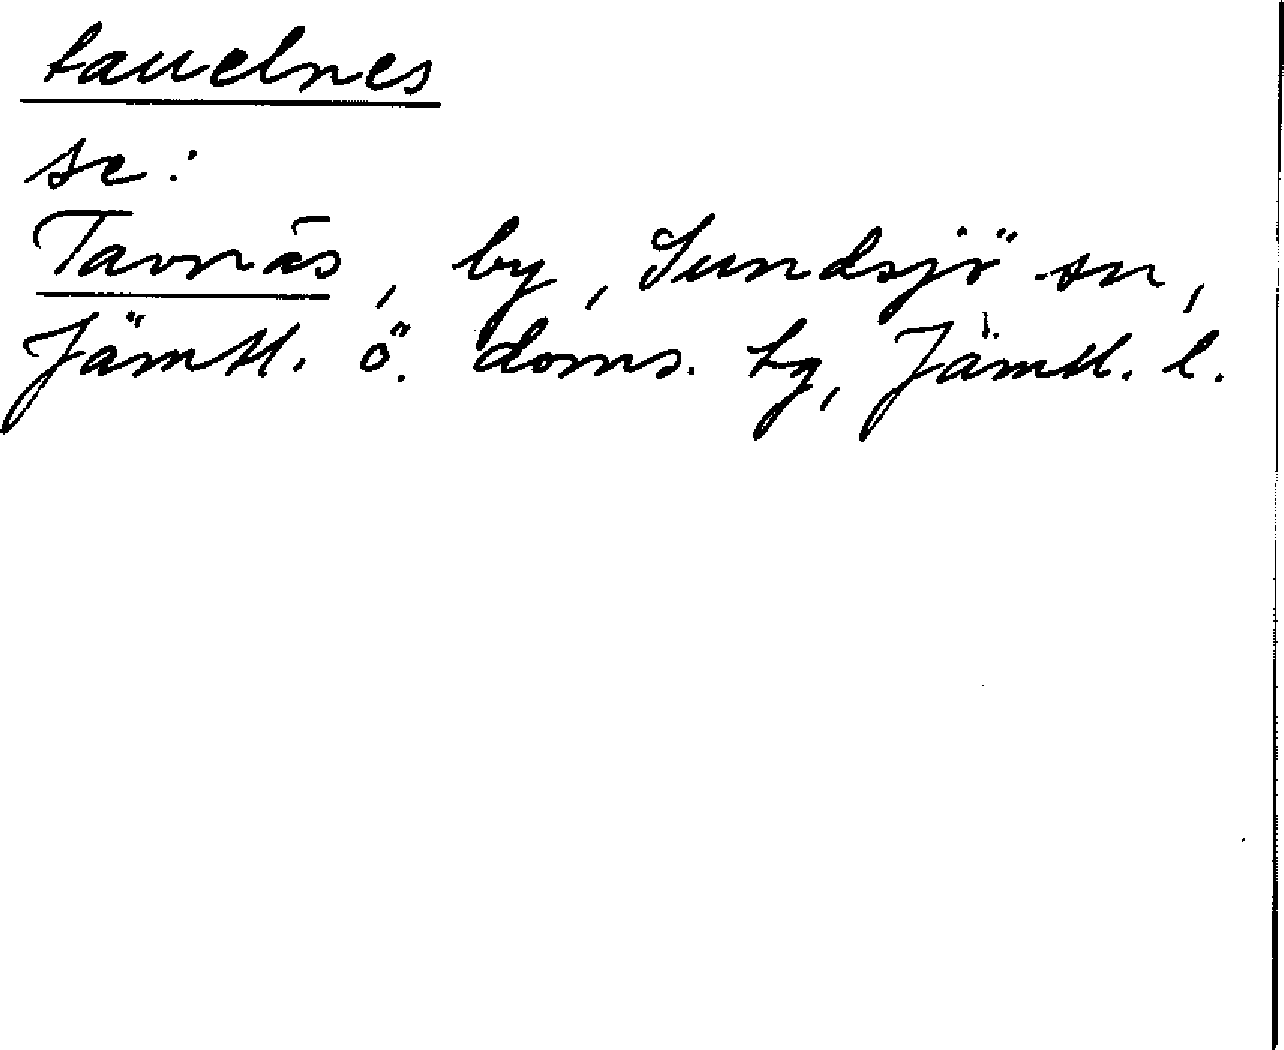 tauelnes
se:
Tavnäs, by, Sundsjö sn,
Jämtl. ö. doms. tg, Jämtl. l.